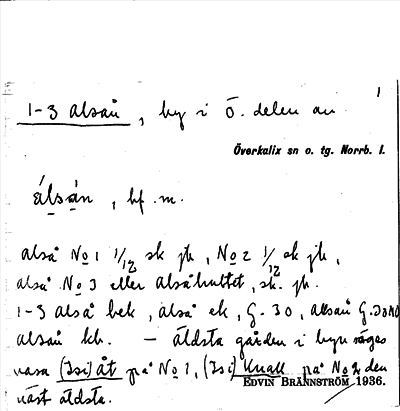 1
1-3 Alsån, by i Ö. delen av
Överkalix sn o. tg. Norrb. l.
álsån, bf. m.
alså No 1 1/12 sk jb, No 2 1/12 sk jb,
alså No 3 eller alsåhuttet, sk. jb.
1-3 alså bek, alså ek, G. 30, alsån G.
alsån kb. – äldsta gården i byn säges
vara (3si) åt på No 1, (3si) Knall på No 2 den
näst äldsta.
EDVIN BRÄNNSTRÖM 1936.